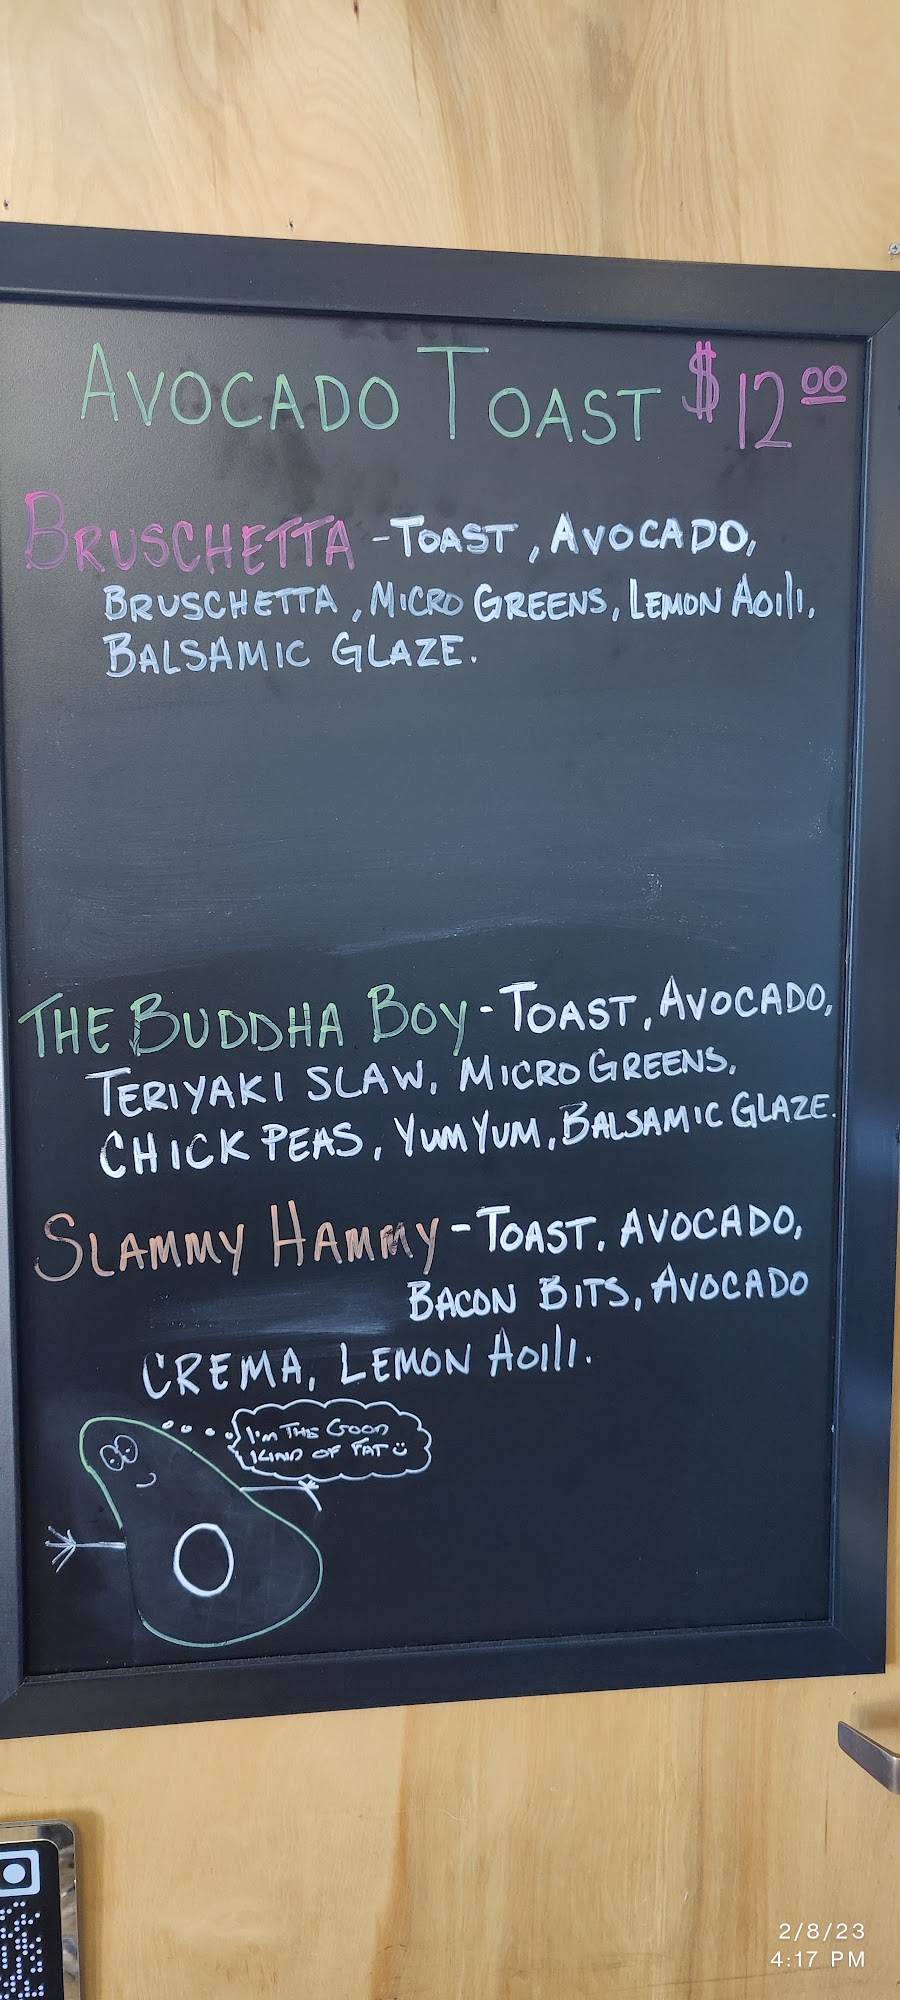 AVOCADO TOAST $12.00
BRUSCHETTA - TOAST, AVOCADO,
BRUSCHETTA, MICRO GREENS, LEMON AOILI,
BALSAMIC GLAZE.
THE BUDDHA BOY - TOAST, AVOCADO,
TERIYAKI SLAW, MICRO GREENS,
CHICK PEAS, YUM YUM, BALSAMIC GLAZE.
SLAMMY HAMMY - TOAST, AVOCADO,
BACON BITS, AVOCADO
CREMA, LEMON AOILI.
I'M THE GOOD
KIND OF FAT
2/8/23
4:17 PM